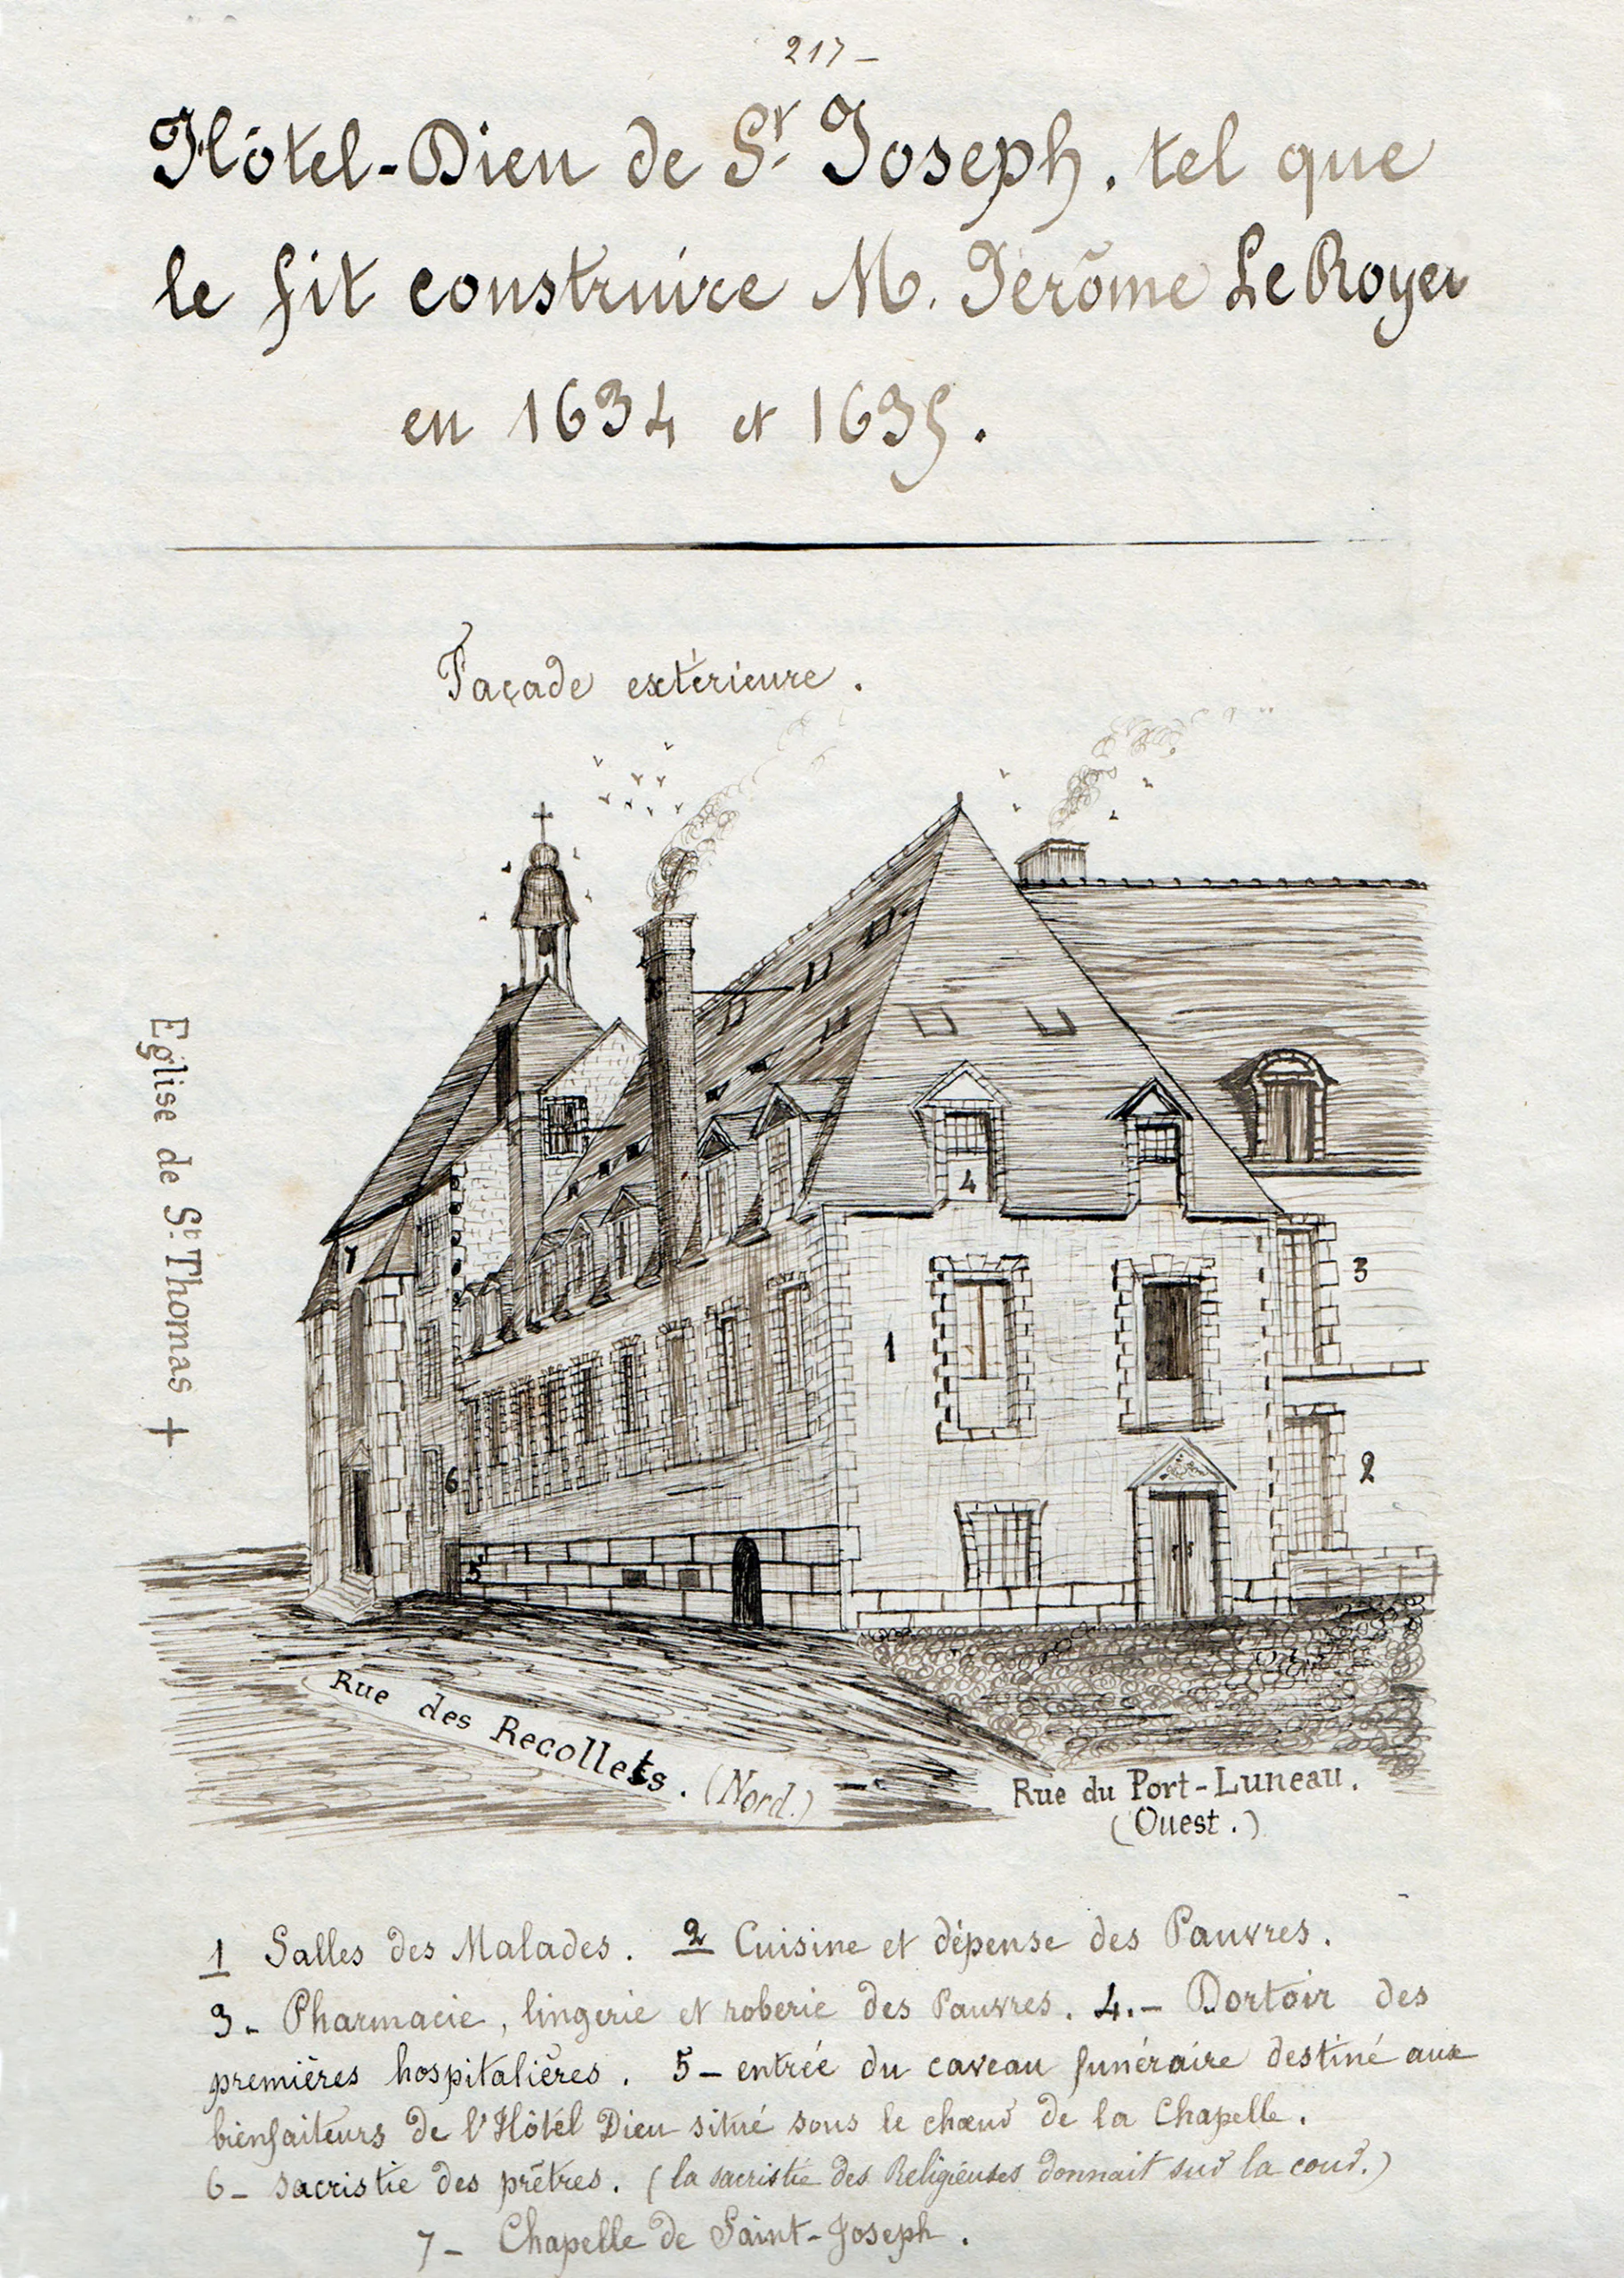 217 -
Hôtel-Dieu de St. Joseph. tel que
le fit construire M. Jérôme Le Royer
en 1634 et 1635.
Façade extérieure.
Eglise de St. Thomas +
4
7
3
1
2
6
5
Rue des Recollets. (Nord.)
Rue du Port-Luneau.
(Ouest.)
1 Salles des Malades. 2 Cuisine et dépense des Pauvres.
3- Pharmacie, lingerie et roberie des Pauvres. 4.- Dortoir des
premières hospitalières. 5- entrée du caveau funéraire destiné aux
bienfaiteurs de l'Hôtel Dieu situé sous le chœur de la Chapelle.
6- sacristie des prêtres. (la sacristie des Religieuses donnait sur la cour.)
7- Chapelle de Saint-Joseph.